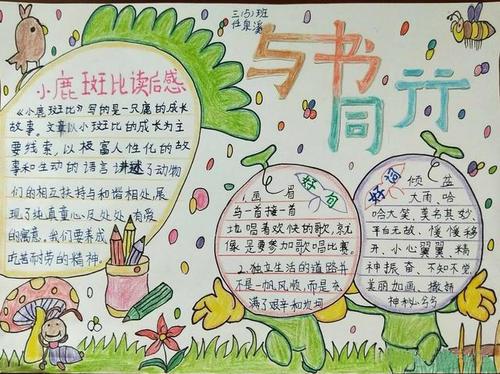 三(5)班
任泉溪
与书同行
小鹿斑比读后感
《小鹿斑比》写的是一只鹿的成长
故事。文章以小斑比的成长为主
要线索,以极富人性化的故
事和生动的语言讲述了动物
们的相互扶持与和谐相处,展
现了纯真童心及处处有爱
的寓意,我们要养成
吃苦耐劳的精神。
好句
1.画眉
鸟一首接一首
地唱着欢快的歌,就
像是要参加歌唱比赛。
2.独立生活的道路并
不是一帆风顺,而是充
满了艰辛和坎坷
好词
倾盆
大雨、哈
哈大笑、莫名其妙、
平白无故、慢慢移
开、小心翼翼、精
神振奋、不知不觉、
美丽如画、撒娇
神秘兮兮